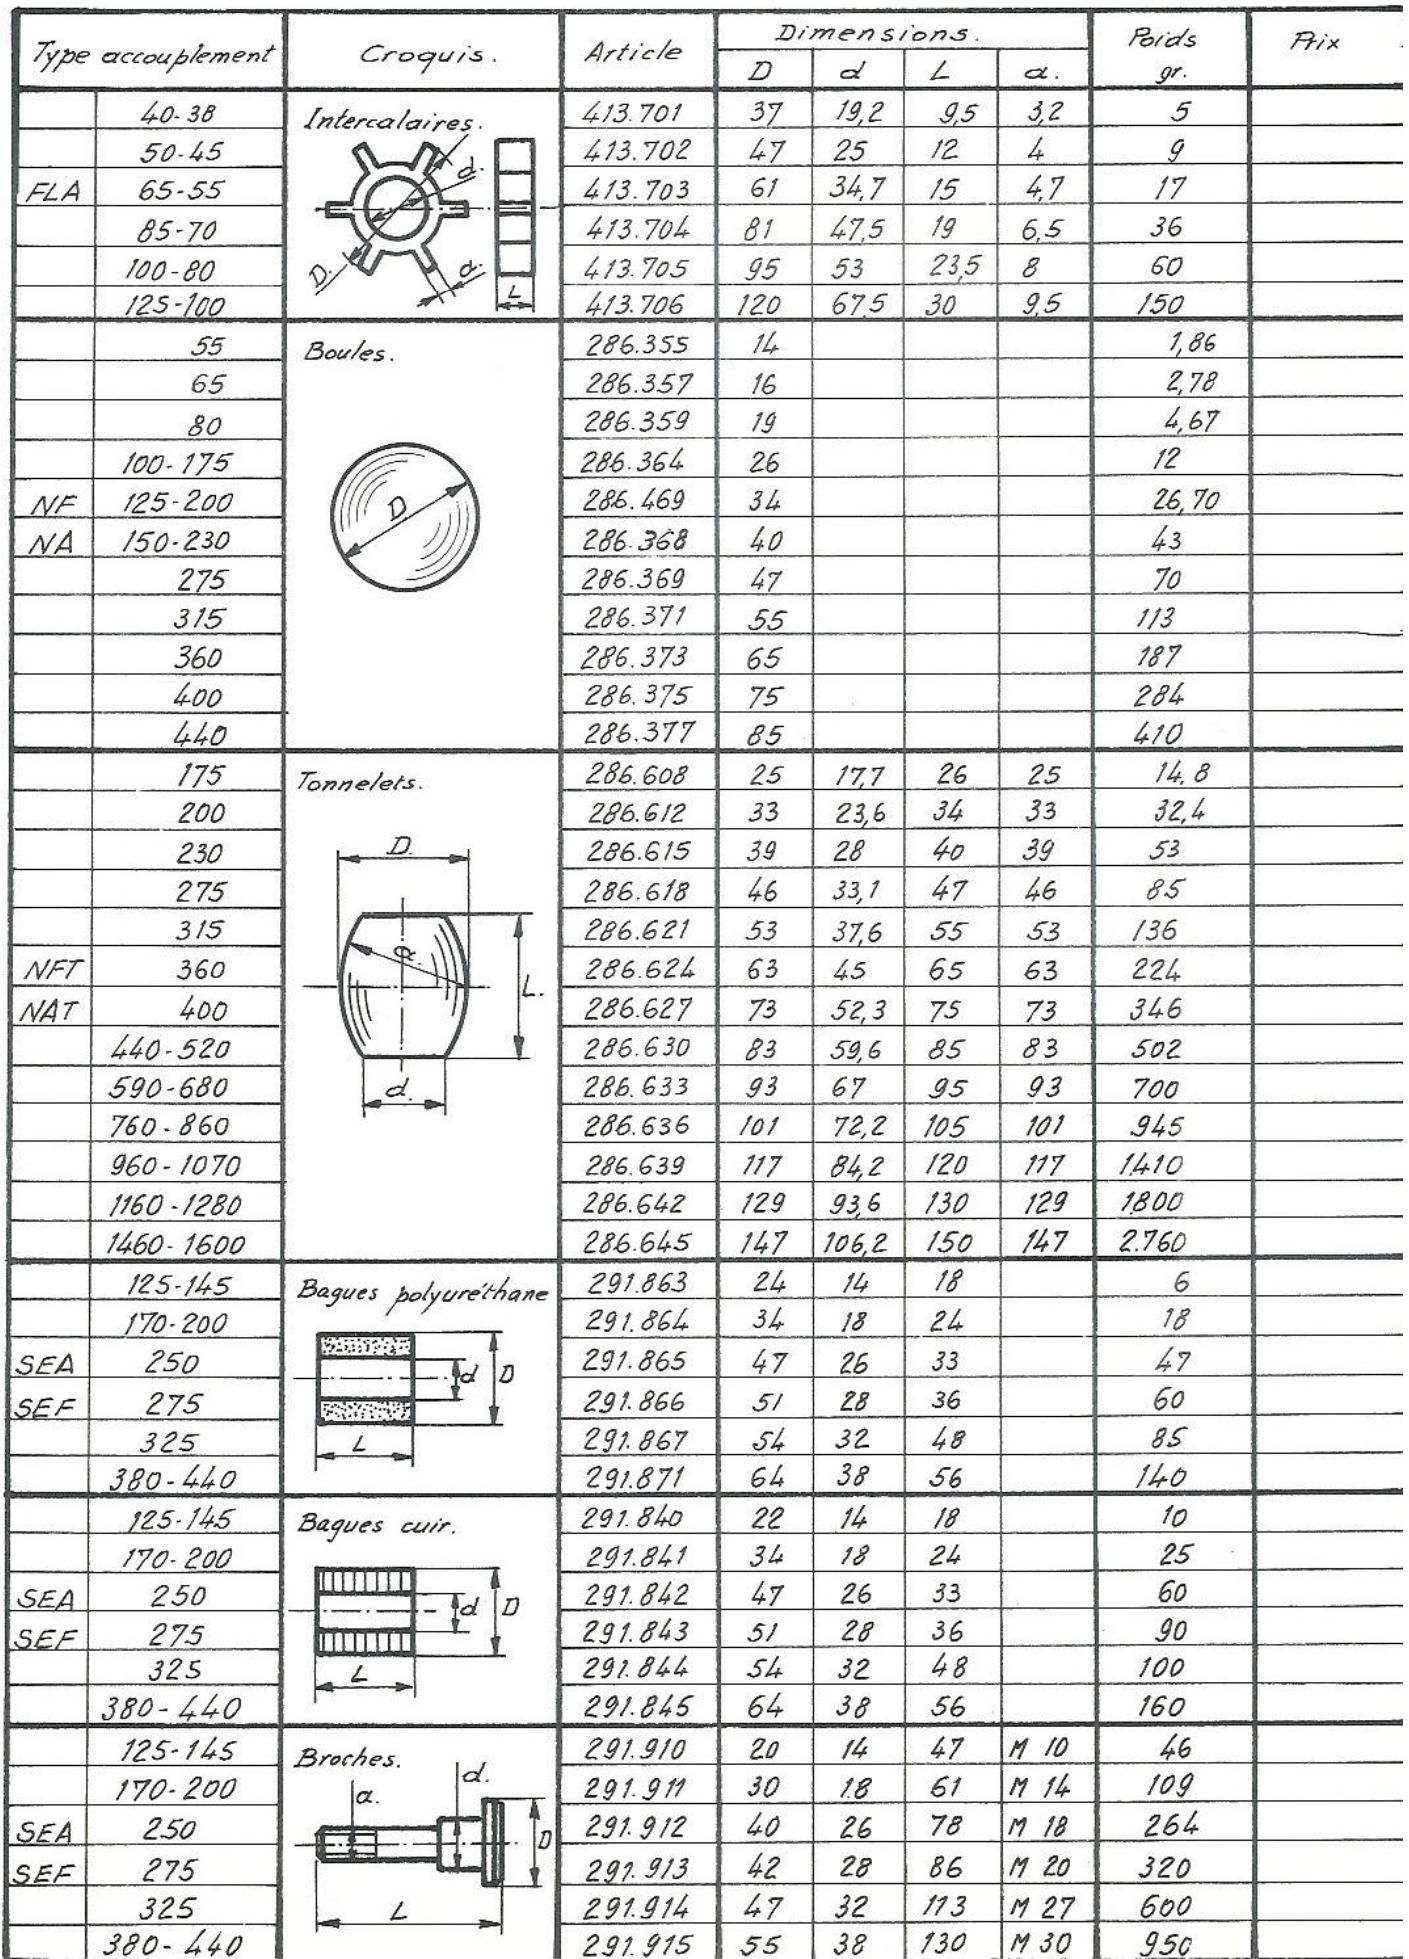 Type accouplement Croquis. Article Dimensions. Poids gr. Prix
D d L a.
40-38 Intercalaires. 413.701 37 19,2 9,5 3,2 5
50-45 413.702 47 25 12 4 9
FLA 65-55 413.703 61 34,7 15 4,7 17
85-70 413.704 81 47,5 19 6,5 36
100-80 413.705 95 53 23,5 8 60
125-100 413.706 120 67,5 30 9,5 150
d. D. a. L
55 Boules. 286.355 14 1,86
65 286.357 16 2,78
80 286.359 19 4,67
100-175 286.364 26 12
NF 125-200 286.469 34 26,70
NA 150-230 286.368 40 43
275 286.369 47 70
315 286.371 55 113
360 286.373 65 187
400 286.375 75 284
440 286.377 85 410
D
175 Tonnelets. 286.608 25 17,7 26 25 14,8
200 286.612 33 23,6 34 33 32,4
230 286.615 39 28 40 39 53
275 286.618 46 33,1 47 46 85
315 286.621 53 37,6 55 53 136
NFT 360 286.624 63 45 65 63 224
NAT 400 286.627 73 52,3 75 73 346
440-520 286.630 83 59,6 85 83 502
590-680 286.633 93 67 95 93 700
760-860 286.636 101 72,2 105 101 945
960-1070 286.639 117 84,2 120 117 1410
1160-1280 286.642 129 93,6 130 129 1800
1460-1600 286.645 147 106,2 150 147 2.760
D. a. L. d.
125-145 Bagues polyuréthane 291.863 24 14 18 6
170-200 291.864 34 18 24 18
SEA 250 291.865 47 26 33 47
SEF 275 291.866 51 28 36 60
325 291.867 54 32 48 85
380-440 291.871 64 38 56 140
d D L
125-145 Bagues cuir. 291.840 22 14 18 10
170-200 291.841 34 18 24 25
SEA 250 291.842 47 26 33 60
SEF 275 291.843 51 28 36 90
325 291.844 54 32 48 100
380-440 291.845 64 38 56 160
d D L
125-145 Broches. 291.910 20 14 47 M 10 46
170-200 291.911 30 18 61 M 14 109
SEA 250 291.912 40 26 78 M 18 264
SEF 275 291.913 42 28 86 M 20 320
325 291.914 47 32 113 M 27 600
380-440 291.915 55 38 130 M 30 950
a. d. D L